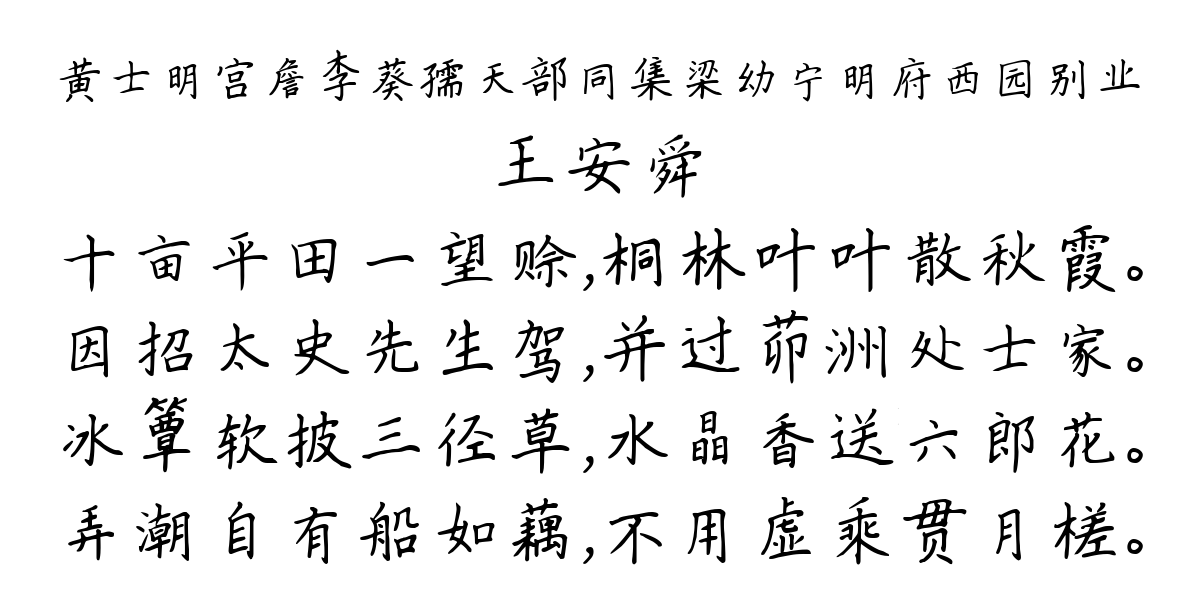 黄士明宫詹李葵孺天部同集梁幼宁明府西园别业
王安舜
十亩平田一望赊,桐林叶叶散秋霞。
因招太史先生驾,并过茆洲处士家。
冰簟软披三径草,水晶香送六郎花。
弄潮自有船如藕,不用虚乘贯月槎。